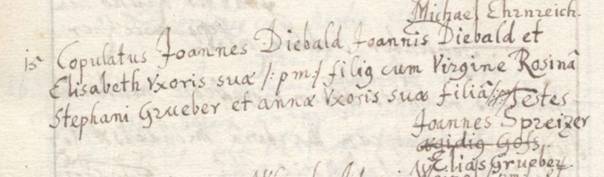 Michael Ehrnreich.
15 Copulatus Joannes Diebald, Joannis Diebald et
Elisabeth Vxoris suæ /: pm :/ filiq cum Virgine Rosinâ
Stephani Grueber et annæ Vxoris suæ filiâ Testes
Joannes Spreizer
Elias Grueber.